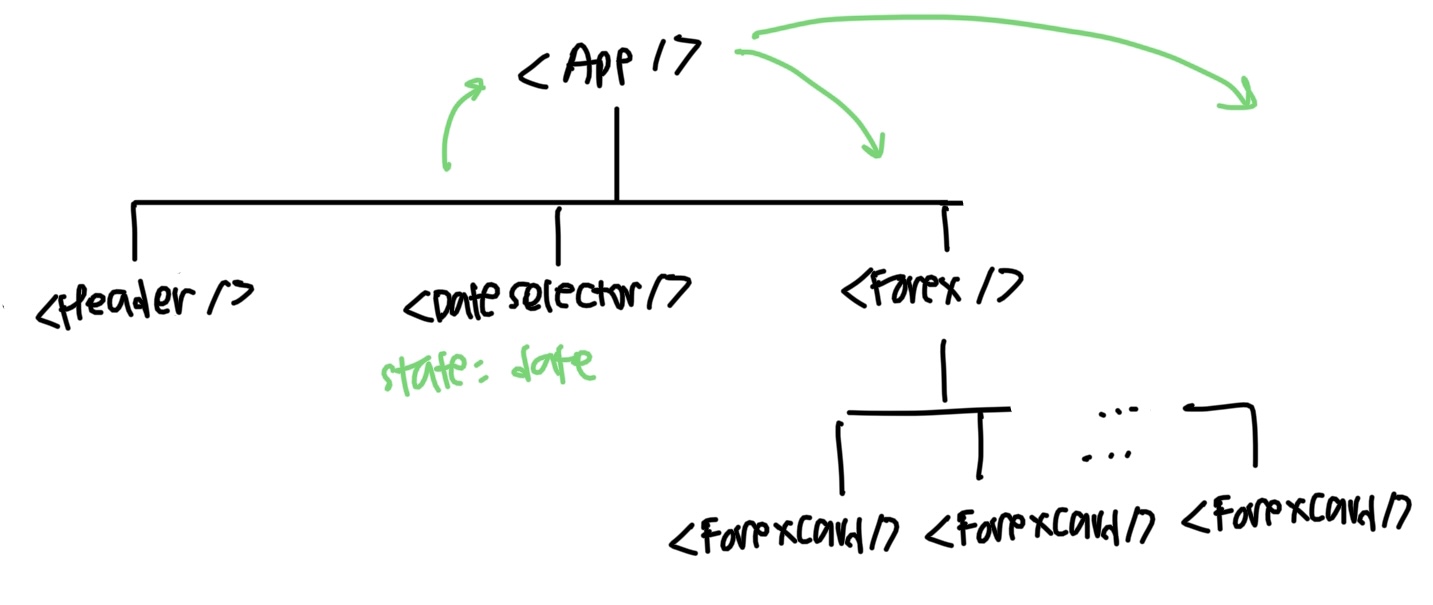 <App />
<Header />
<Dateselector />
<Forex />
state: date
... 
...
<ForexCard />
<ForexCard />
<ForexCard />